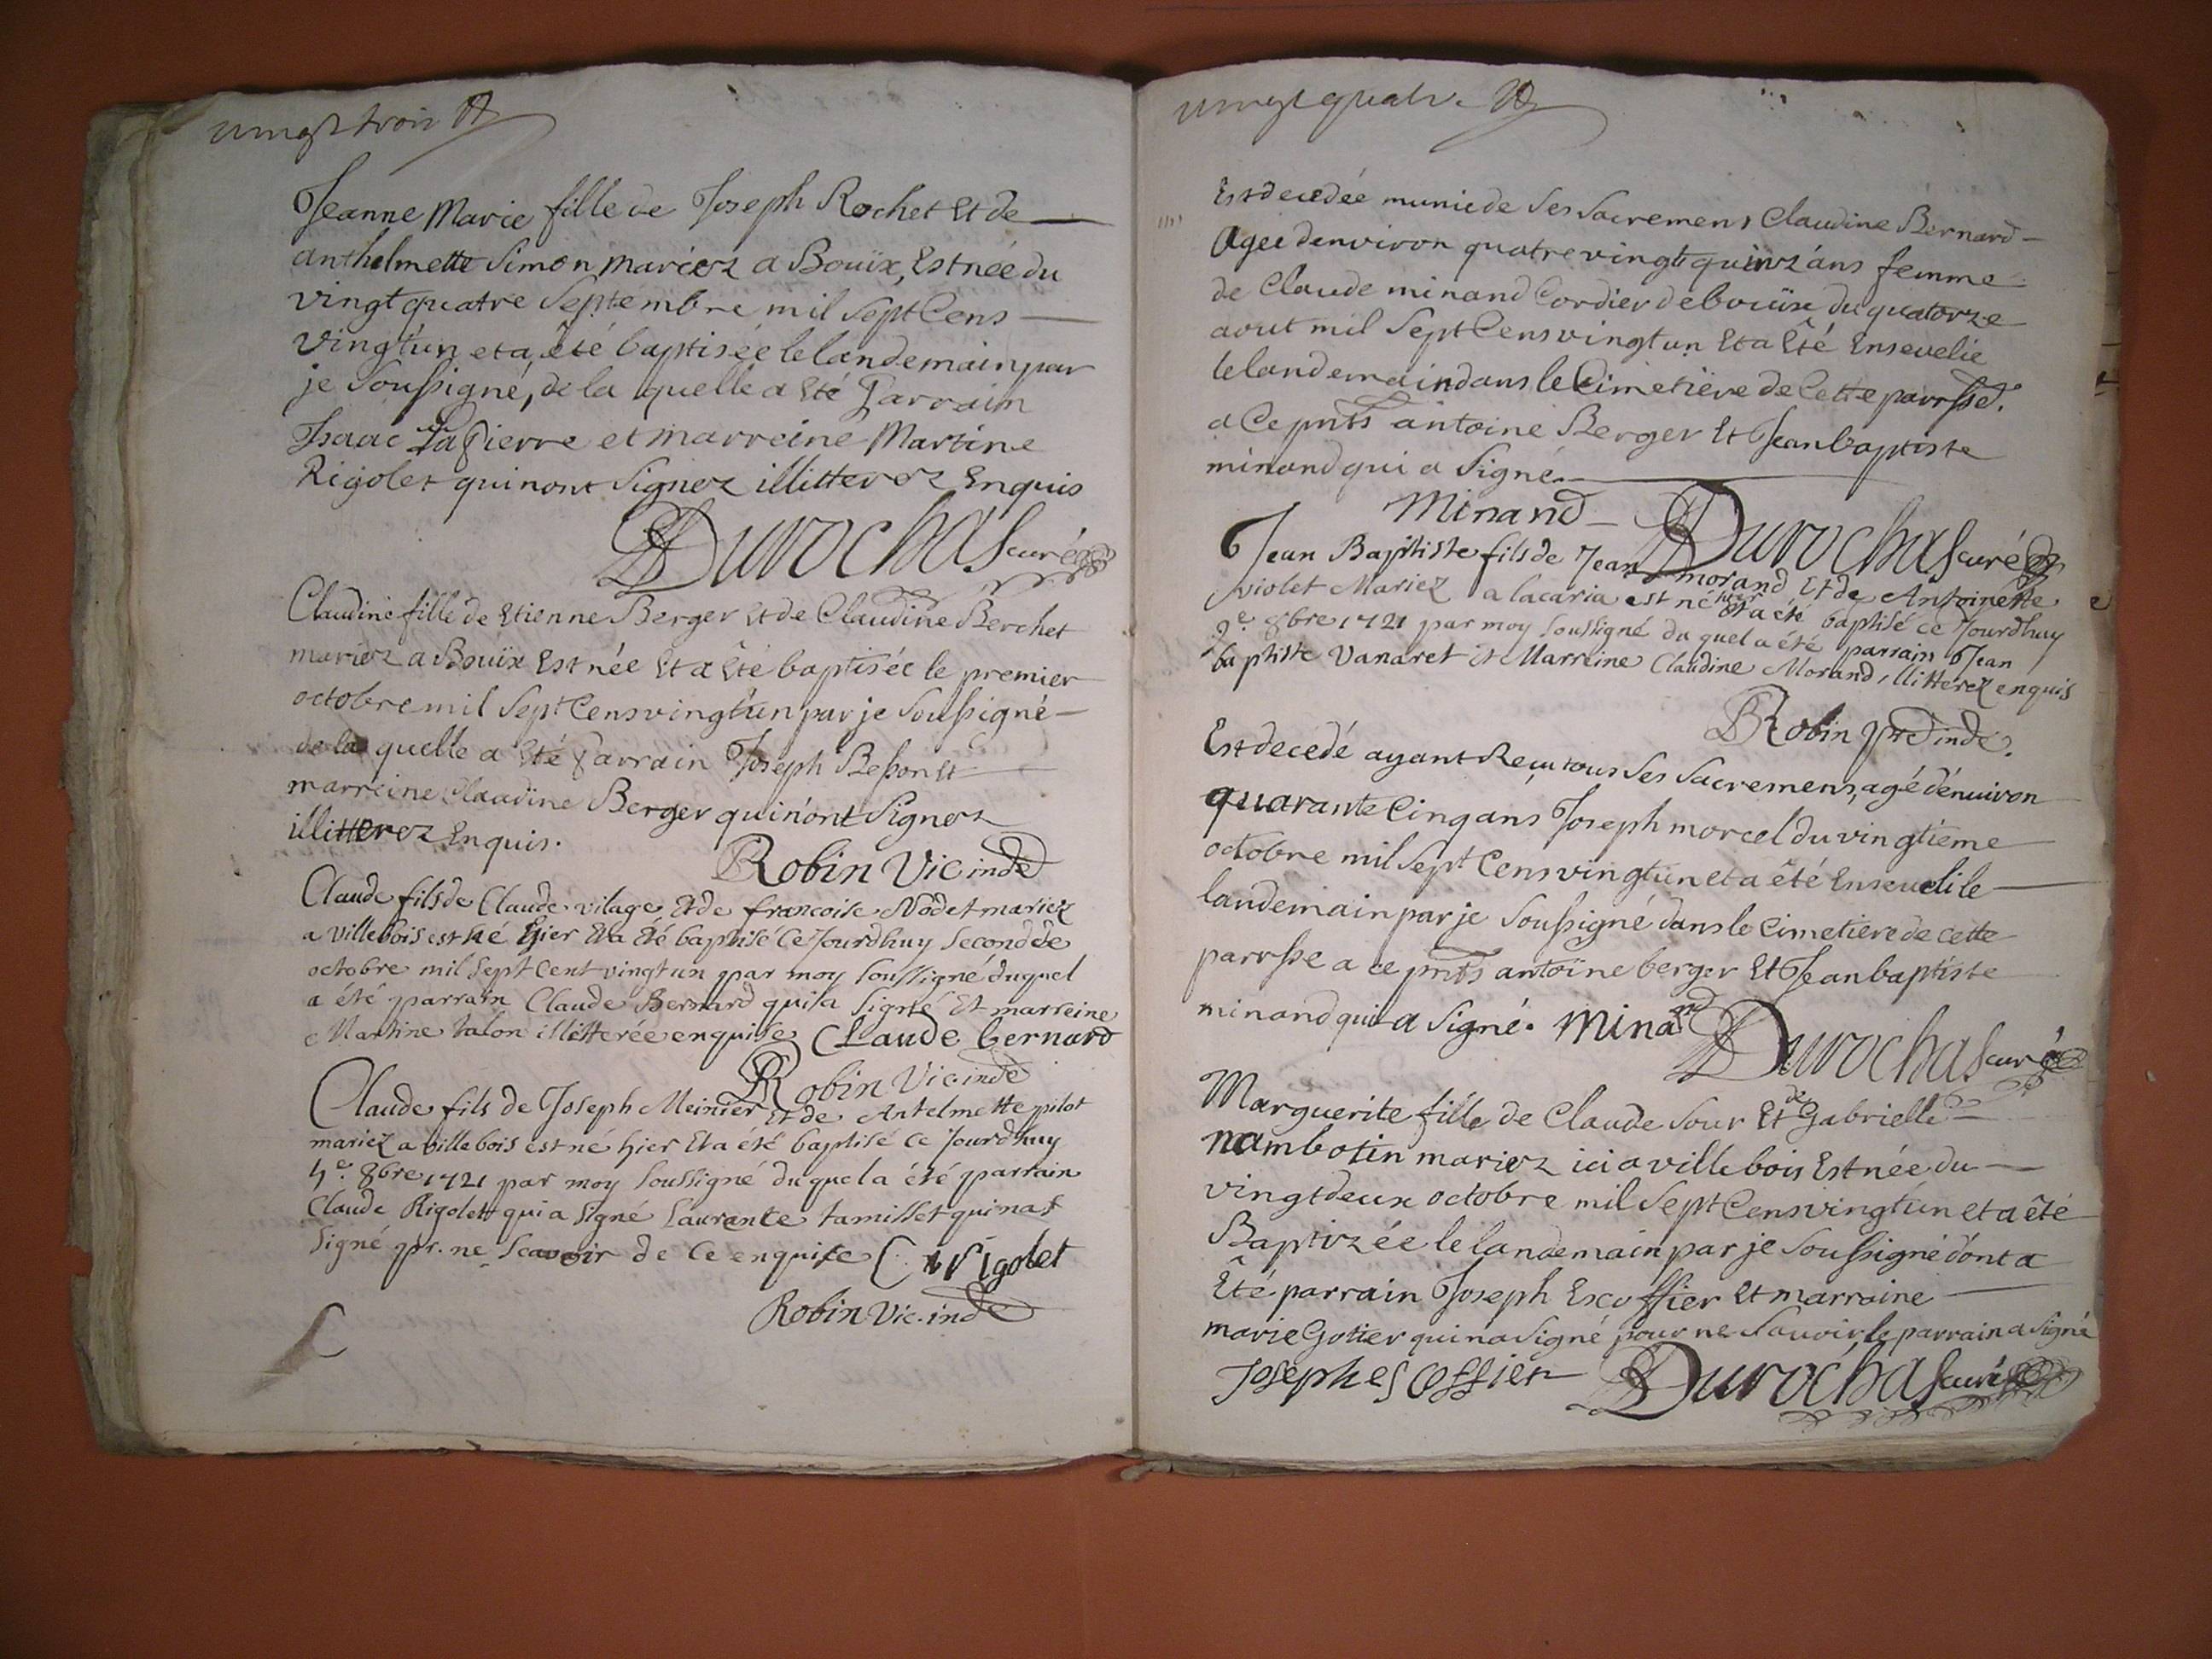 vingt trois
Jeanne Marie fille de Joseph Rochet Et de
anthelmette Simon mariez a Bouïx, Est née du
vingt quatre Septembre mil Sept Cens
vingt un et a été baptisée le landemain par
je Soussigné, de la quelle a Eté Parrain
Isaac LaPierre et marreine Martine
Rigolet qui nont Signez illitterez Enquis
Durochas curé
Claudine fille de Etienne Berger Et de Claudine Berchet
mariez a Bouïx Est née Et a Eté baptisée le premier
octobre mil Sept Cens vingt un par je Soussigné
de la quelle a Eté Parrain Joseph Besson Et
marreine Claudine Berger qui n'ont Signez
illitterez Enquis.
Robin Vic. inde
Claude fils de Claude vilage Et de francoise Nodet mariez
a villebois est né hier Et a été baptisé ce Jourdhuy second de
octobre mil Sept Cent vingt un par moy Soussigné duquel
a été parrain Claude Bernard qui a Signé Et marreine
Martine talon illitterée enquise Claude bernard
Robin Vic. inde
Claude fils de Joseph Meinier Et de Antelmette pilot
mariez a villebois est né hier Et a été baptisé ce Jourdhuy
4e. 8bre 1721 par moy Soussigné duquel a été parrain
Claude Rigolet qui a Signé Laurance tamisset qui na
Signé pr. ne Scavoir de Ce enquise C. Rigolet
Robin Vic. inde
vingt quatre
Est decedée munie de Ses Sacremens Claudine Bernard
Agée denviron quatre vingt quinz áns femme
de Claude minand Cordier de bouïx du quatorze
aout mil Sept Cens vingt un Et a Eté Ensevelie
le landemain dans le Cimetiere de Cette parsse.
a Ce pnts antoine Berger Et Jean baptiste
minand qui a Signé.
Minand Durochas curé
Jean Baptiste fils de Jean morand Et de Antoinette
violet Mariez a lacaria est né hier Et a été baptisé ce Jourdhuy
9e. 8bre 1721 par moy Soussigné du quel a été parrain Jean
baptiste Vanaret Et Marreine Claudine Morand, illitterez enquis
Robin pre inde.
Est decedé ayant Recu tous Ses Sacremens, agé dénuiron
quarante Cinq ans Joseph morcel du vingtieme
octobre mil Sept Cens vingt un et a été Enseveli le
landemain par je Soussigné dans le Cimetiere de cette
parsse a ce pnts antoine berger Et Jean baptiste
minand qui a Signé. Minand
Durochas curé
Marguerite fille de Claude Sour Et de Gabrielle
nambotin mariez ici a villebois Est née du
vingt deux octobre mil Sept Cens vingt un et a été
Baptizée le landemain par je Soussigné dont a
Eté parrain Joseph Escoffier Et marraine
marie Gotier qui na Signé pour ne Savoir, le parrain a Signé
Joseph escoffier Durochas curé